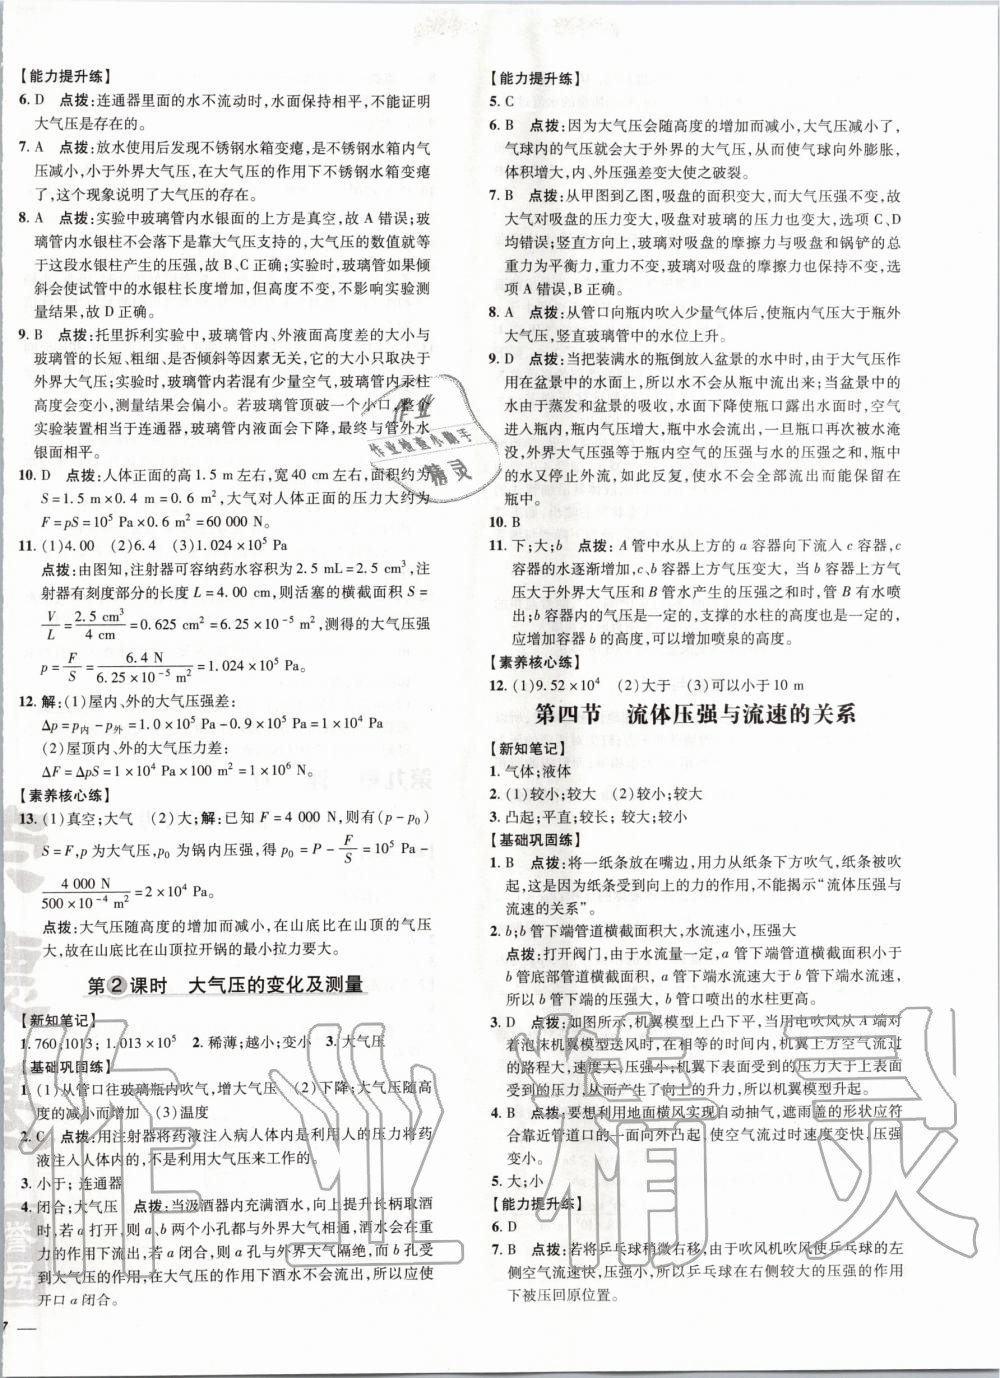 【能力提升练】
6. D 点拨:连通器里面的水不流动时,水面保持相平,不能证明
大气压是存在的。
7. A 点拨:放水使用后发现不锈钢水箱变瘪,是不锈钢水箱内气
压减小,小于外界大气压,在大气压的作用下不锈钢水箱变瘪
了,这个现象说明了大气压的存在。
8. A 点拨:实验中玻璃管内水银面的上方是真空,故 A 错误;玻
璃管内水银柱不会落下是靠大气压支持的,大气压的数值就等
于这段水银柱产生的压强,故 B、C 正确;实验时,玻璃管如果倾
斜会使试管中的水银柱长度增加,但高度不变,不影响实验测
量结果,故 D 正确。
9. B 点拨:托里拆利实验中,玻璃管内、外液面高度差的大小与
玻璃管的长短、粗细、是否倾斜等因素无关,它的大小只取决于
外界大气压;实验时,玻璃管内若混有少量空气,玻璃管内汞柱
高度会变小,测量结果会偏小。若玻璃管顶破一个小口,整个
实验装置相当于连通器,玻璃管内液面会下降,最终与管外水
银面相平。
10. D 点拨:人体正面的高 1.5 m 左右,宽 40 cm 左右,面积约为
S=1.5 m×0.4 m=0.6 m²,大气对人体正面的压力大约为
F=pS=10⁵ Pa×0.6 m²=60 000 N。
11. (1)4.00 (2)6.4 (3)1.024×10⁵ Pa
点拨:由图知,注射器可容纳药水容积为 2.5 mL=2.5 cm³,注
射器有刻度部分的长度 L=4.00 cm,则活塞的横截面积 S=
V/L=2.5 cm³/4 cm=0.625 cm²=6.25×10⁻⁵ m²,测得的大气压强
p=F/S=6.4 N/6.25×10⁻⁵ m²=1.024×10⁵ Pa。
12. 解:(1)屋内、外的大气压强差:
Δp=p内-p外=1.0×10⁵ Pa-0.9×10⁵ Pa=1×10⁴ Pa
(2)屋顶内、外的大气压力差:
ΔF=ΔpS=1×10⁴ Pa×100 m²=1×10⁶ N。
【素养核心练】
13. (1)真空;大气 (2)大;解:已知 F=4 000 N,则有(p-p₀)
S=F,p为大气压,p₀ 为锅内压强,得 p₀=P-F/S=1×10⁵ Pa-
4 000 N/500×10⁻⁴ m²=2×10⁴ Pa。
点拨:大气压随高度的增加而减小,在山底比在山顶的气压
大,故在山底比在山顶拉开锅的最小拉力要大。
第2课时 大气压的变化及测量
【新知笔记】
1. 760;1013; 1.013×10⁵ 2. 稀薄;越小;变小 3. 大气压
【基础巩固练】
1. (1)从管口往玻璃瓶内吹气,增大气压 (2)下降;大气压随高
度的减小而增加 (3)温度
2. C 点拨:用注射器将药液注入病人体内是利用人的压力将药
液注入体内的,不是利用大气压来工作的。
3. 小于; 连通器
4. 闭合;大气压 点拨:当汲酒器内充满酒水,向上提升长柄取酒
时,若 a 打开,则 a、b 两个小孔都与外界大气相通,酒水会在重
力的作用下流出;若 a 闭合,则 a 孔与外界大气隔绝,而 b 孔受
到大气压的作用,在大气压的作用下酒水不会流出,故应使
开口 a 闭合。
【能力提升练】
5. C
6. B 点拨:因为大气压会随高度的增加而减小,大气压减小了,
气球内的气压就会大于外界的大气压,从而使气球向外膨胀,
体积增大,内、外压强差会变大使之破裂。
7. B 点拨:从甲图到乙图,吸盘的面积变大,而大气压强不变,故
大气对吸盘的压力变大,吸盘对玻璃的压力也变大,选项 C、D
均错误;竖直方向上,玻璃对吸盘的摩擦力与吸盘和锅铲的总
重力为平衡力,重力不变,玻璃对吸盘的摩擦力也不变,故选
项 A 错误,B 正确。
8. A 点拨:从管口向瓶内吹入少量气体后,使瓶内气压大于瓶外
大气压,竖直玻璃管中的水位上升。
9. D 点拨:当把装满水的瓶倒放入盆景的水中时,由于大气压作
用在盆景中的水面上,所以水不会从瓶中流出来;当盆景中的
水由于蒸发和盆景的吸收,水面下降使瓶口露出水面时,空气
进入瓶内,瓶内气压增大,水会流出来,一旦瓶口再次被水淹
没,外界大气压强等于瓶内空气的压强与水的压强之和时,瓶中
的水又停止外流,如此反复,使水不会全部流出而能保留在
瓶中。
10. B
11. 下;大;b 点拨:A 管中水从上方的 a 容器向下流入 c 容器,c
容器的水逐渐增加,c 容器上方气压变大;b 容器上方气
压大于外界大气压和 B 管水产生的压强之和时,管 B 有水喷
出;b 容器内的气压是一定的,支撑的水柱的高度也是一定的,
应增加容器 b 的高度,可以增加喷泉的高度。
【素养核心练】
12. (1)9.52×10⁴ (2)大于 (3)可以小于 10 m
第四节 流体压强与流速的关系
【新知笔记】
1. 气体;液体
2. (1)较小;较大 (2)较小;较大
3. 凸起;平直;较长; 较大; 较小
【基础巩固练】
1. B 点拨:将一纸条放在嘴边,用力从纸条下方吹气,纸条被吹
起,这是因为纸条受到向上的力的作用,不能揭示“流体压强与
流速的关系”。
2. b;b 管下端管道横截面积大,水流速小,压强大
点拨:打开阀门,由于水流量一定,a 管下端管道横截面积小于
b 管底部管道横截面积,a 管下端的水流速大于 b 管下端的水流
速,所以 b 管下端的压强大,b 管喷出的水柱更高。
3. D 点拨:如图所示,机翼模型上凸下平,当用电吹风从 A 端对
着泡沫机翼模型送风时,在相等的时间内,机翼上方空气流过
的路程大,速度大,压强小;机翼下方空气流过的路程小,速度
小,压强大,从而产生了向上的升力,所以机翼模型升起。
4. B 点拨:要想利用地面横风实现自动抽气,遮雨盖的形状应符
合靠近管道口的一面向外凸起,使空气流过时速度变快,压强
变小。
5. 大;小
【能力提升练】
6. D
7. B 点拨:若将乒乓球稍微右移,由于吹风机吹风使乒乓球的左
侧空气流速快,压强小,所以乒乓球在右侧较大的压强的作用
下被压回原位置。
作业
作业检查小助手
精灵
作业精灵